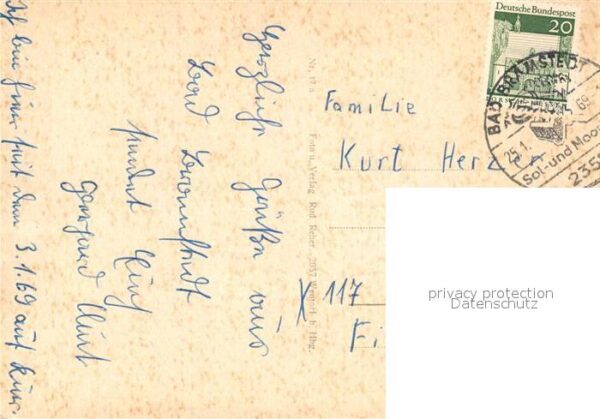 Herzliche Grüße aus
Bad Bramstedt
sendet Euch
Ich bin hier seit dem 3.1.69 auf Kur.
Nr. 17 a Foto u. Verlag Rud. Reher, 2057 Wentorf b. Hbg.
Deutsche Bundespost
20
BAD BRAMSTEDT
25.1. 69
Sol- und Moor
2357
Familie
Kurt Herzer
X 117
Fi
privacy protection
Datenschutz